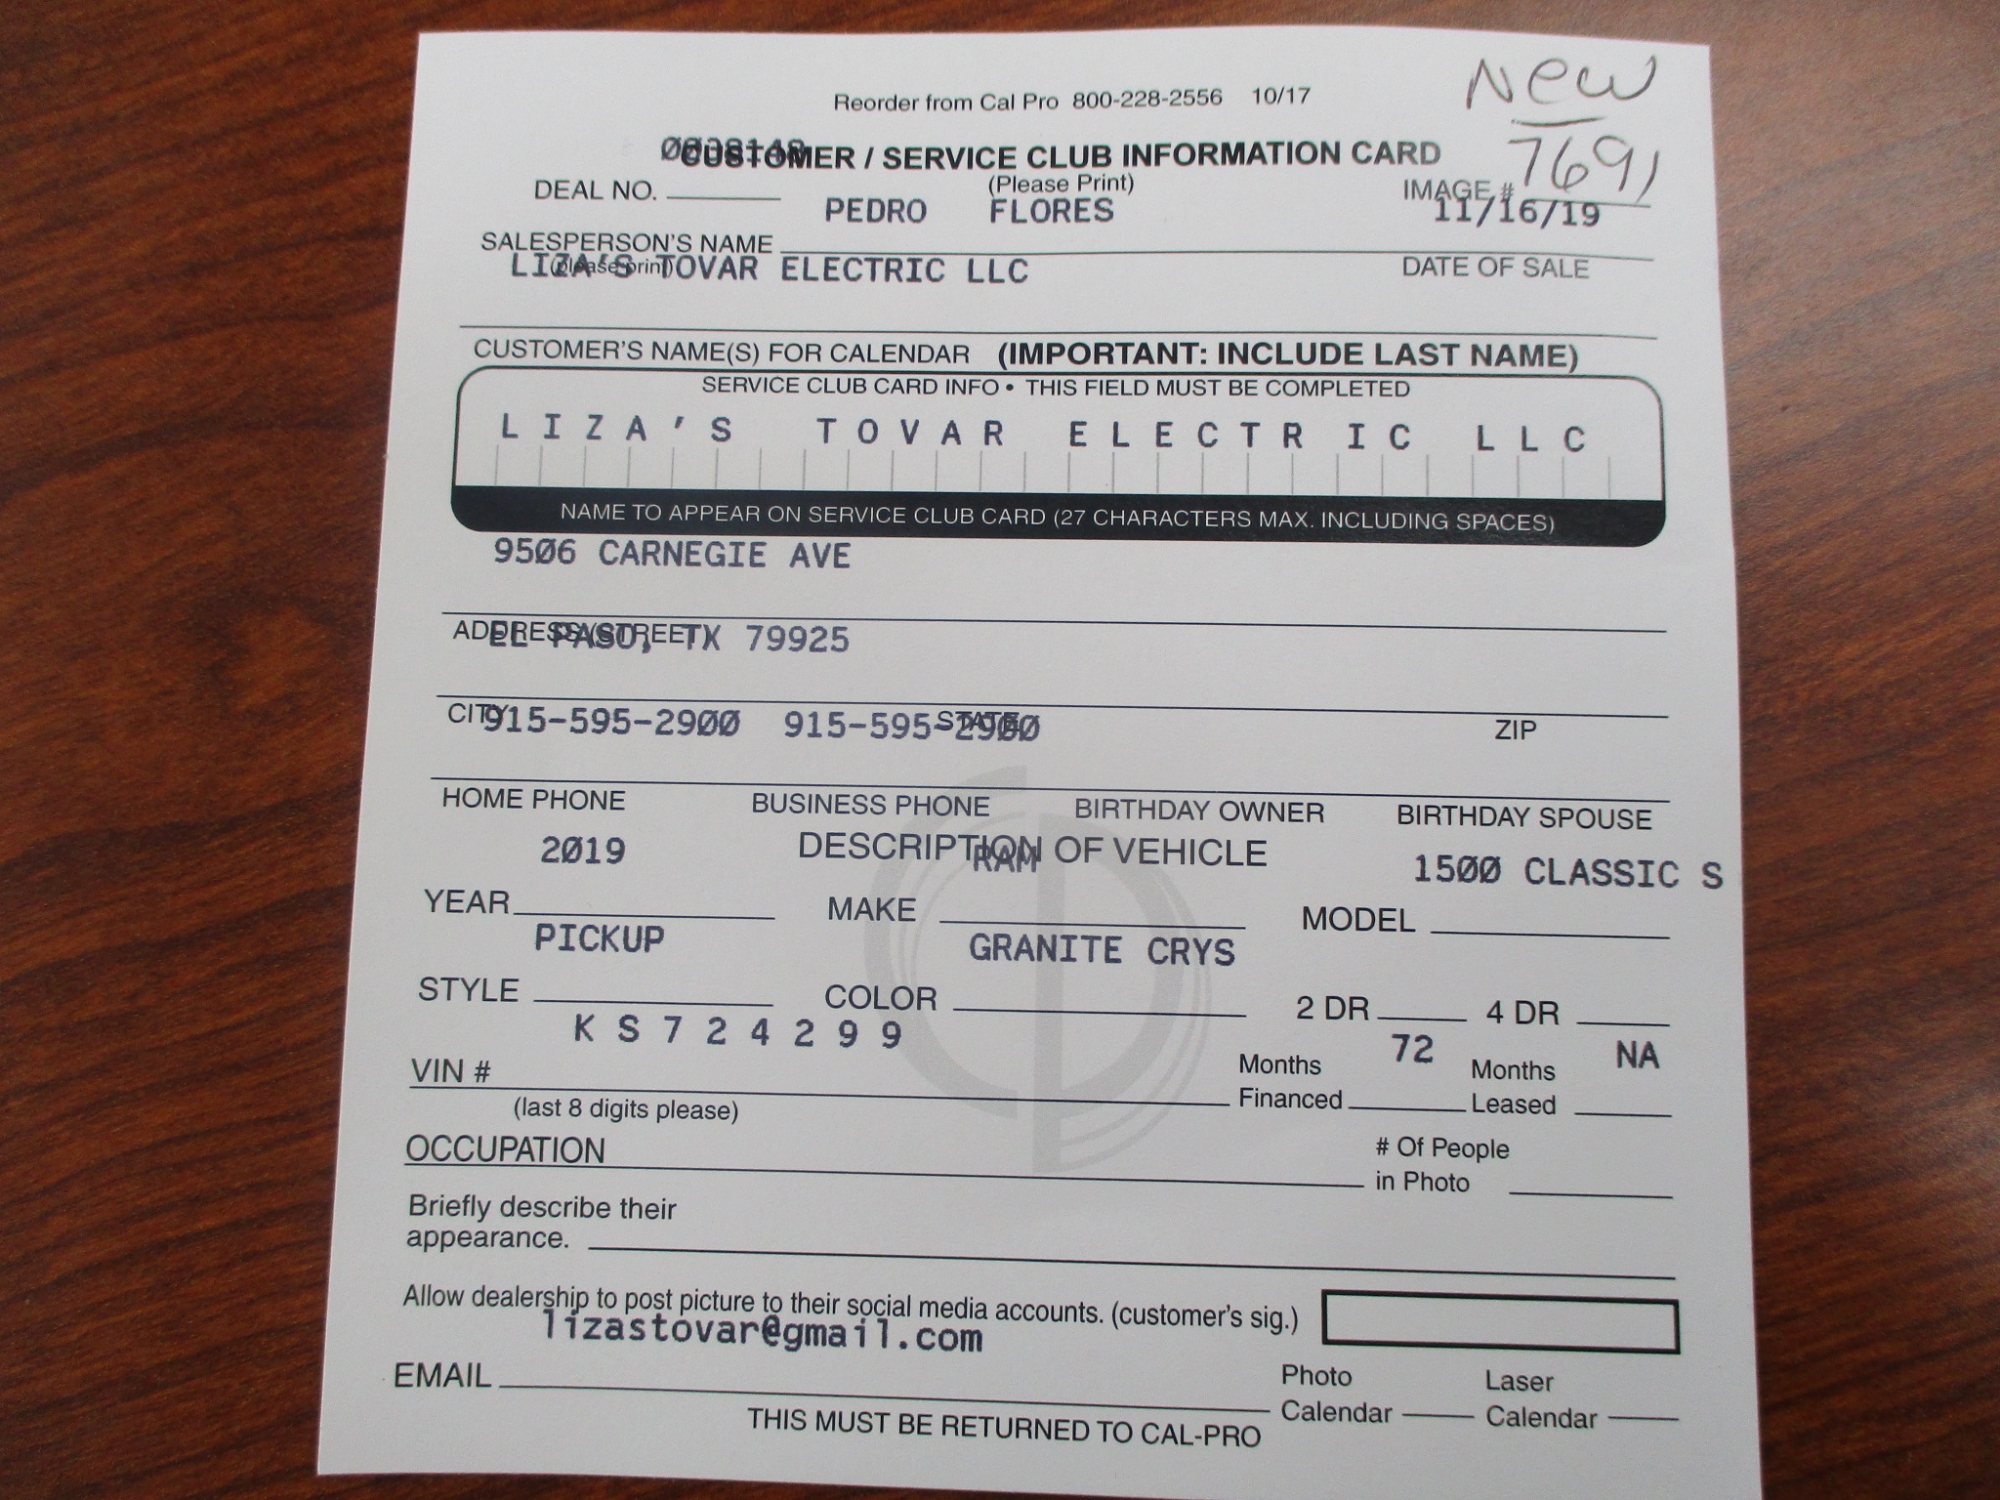 New
Reorder from Cal Pro 800-228-2556 10/17
CUSTOMER / SERVICE CLUB INFORMATION CARD
(Please Print)
DEAL NO.
IMAGE # 7691
PEDRO FLORES 11/16/19
SALESPERSON'S NAME
(please print)
DATE OF SALE
LIZA'S TOVAR ELECTRIC LLC
CUSTOMER'S NAME(S) FOR CALENDAR (IMPORTANT: INCLUDE LAST NAME)
SERVICE CLUB CARD INFO • THIS FIELD MUST BE COMPLETED
LIZA'S TOVAR ELECTRIC LLC
NAME TO APPEAR ON SERVICE CLUB CARD (27 CHARACTERS MAX. INCLUDING SPACES)
9506 CARNEGIE AVE
ADDRESS (STREET)
EL PASO, TX 79925
CITY STATE ZIP
915-595-2900 915-595-2900
HOME PHONE BUSINESS PHONE BIRTHDAY OWNER BIRTHDAY SPOUSE
DESCRIPTION OF VEHICLE
2019 RAM 1500 CLASSIC S
YEAR MAKE MODEL
PICKUP GRANITE CRYS
STYLE COLOR 2 DR 4 DR
KS724299
VIN #
(last 8 digits please)
Months Financed 72
Months Leased NA
OCCUPATION
# Of People in Photo
Briefly describe their
appearance.
Allow dealership to post picture to their social media accounts. (customer's sig.)
lizastovar@gmail.com
EMAIL
Photo Calendar
Laser Calendar
THIS MUST BE RETURNED TO CAL-PRO